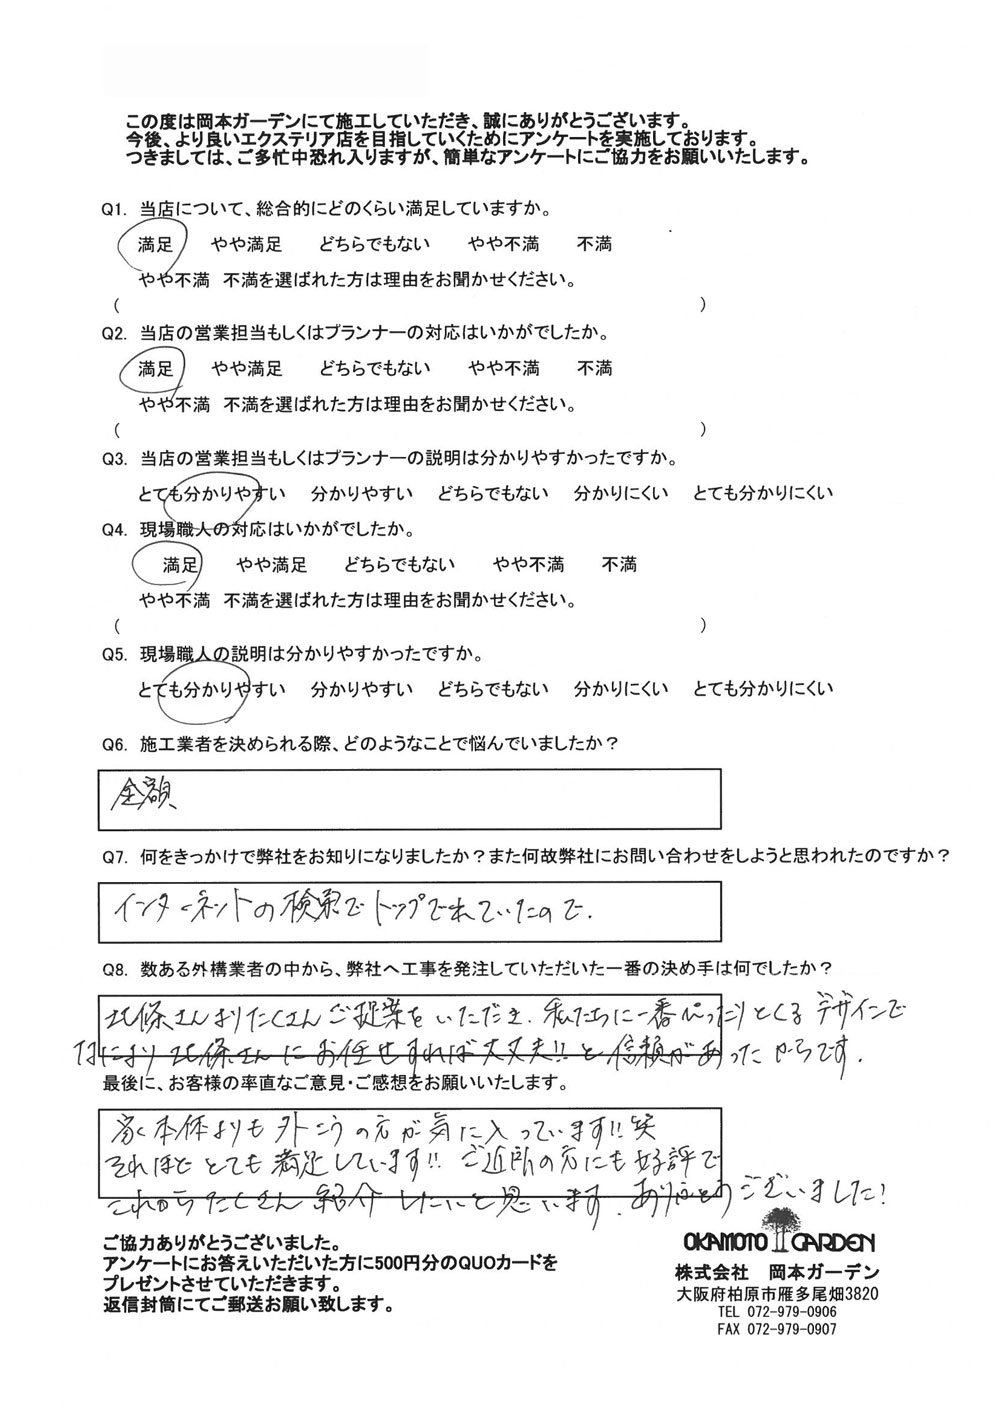 この度は岡本ガーデンにて施工していただき、誠にありがとうございます。
今後、より良いエクステリア店を目指していくためにアンケートを実施しております。
つきましては、ご多忙中恐れ入りますが、簡単なアンケートにご協力をお願いいたします。
Q1. 当店について、総合的にどのくらい満足していますか。
満足 やや満足 どちらでもない やや不満 不満
やや不満 不満を選ばれた方は理由をお聞かせください。
( )
Q2. 当店の営業担当もしくはプランナーの対応はいかがでしたか。
満足 やや満足 どちらでもない やや不満 不満
やや不満 不満を選ばれた方は理由をお聞かせください。
( )
Q3. 当店の営業担当もしくはプランナーの説明は分かりやすかったですか。
とても分かりやすい 分かりやすい どちらでもない 分かりにくい とても分かりにくい
Q4. 現場職人の対応はいかがでしたか。
満足 やや満足 どちらでもない やや不満 不満
やや不満 不満を選ばれた方は理由をお聞かせください。
( )
Q5. 現場職人の説明は分かりやすかったですか。
とても分かりやすい 分かりやすい どちらでもない 分かりにくい とても分かりにくい
Q6. 施工業者を決められる際、どのようなことで悩んでいましたか?
金額、
Q7. 何をきっかけで弊社をお知りになりましたか?また何故弊社にお問い合わせをしようと思われたのですか?
インターネットの検索でトップででていたので.
Q8. 数ある外構業者の中から、弊社へ工事を発注していただいた一番の決め手は何でしたか?
北條さんよりたくさんご提案をいただき、私たちに一番ぴったりとくるデザインで
なにより北條さんにお任せすれば大丈夫!!と信頼があったからです.
最後に、お客様の率直なご意見・ご感想をお願いいたします。
家本体よりも外こうの方が気に入っています!!笑
それほどとても満足しています!! ご近所の方にも好評で
これからたくさん紹介したいと思います.ありがとうございました!
ご協力ありがとうございました。
アンケートにお答えいただいた方に500円分のQUOカードを
プレゼントさせていただきます。
返信封筒にてご郵送お願い致します。
OKAMOTO GARDEN
株式会社 岡本ガーデン
大阪府柏原市雁多尾畑3820
TEL 072-979-0906
FAX 072-979-0907